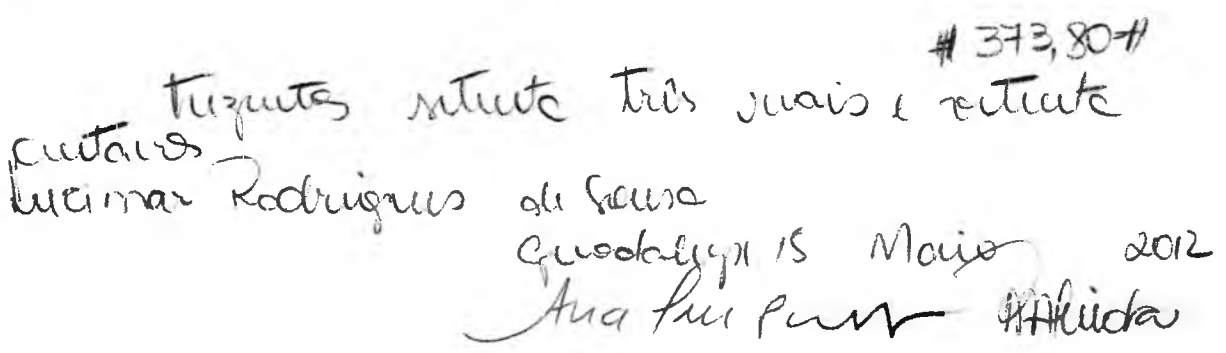 # 373,80 #
Trezentos setenta três reais e setenta
centavos
Lucimar Rodrigues de Sousa
Guadalupe 15 Maio 2012
Ana